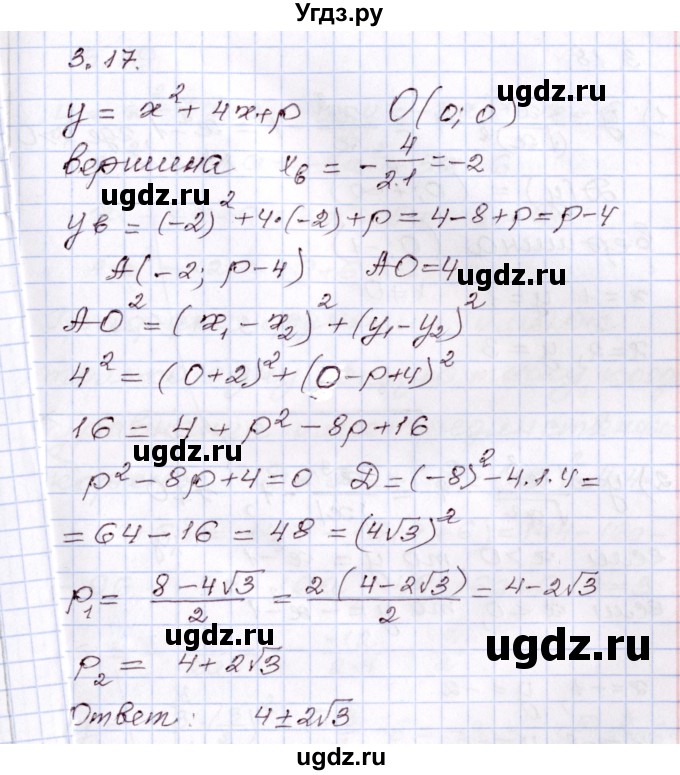 Угдз.ру
3.17.
y = x² + 4x+p O(0; 0)
вершина xв = -4/2·1 = -2
yв = (-2)² + 4·(-2) + p = 4-8+p = p-4
ugdz.ru
A(-2; p-4) AO=4
ugdz.ru
AO² = (x₁ - x₂)² + (y₁-y₂)²
4² = (0+2)² + (0-p+4)²
ugdz.ru
16 = 4 + p² - 8p + 16
ugdz.ru
p² - 8p + 4 = 0 Д = (-8)² - 4·1·4 =
= 64 - 16 = 48 = (4√3)²
p₁ = 8 - 4√3/2 = 2(4-2√3)/2 = 4-2√3
ugdz.ru
ugdz.ru
p₂ = 4+2√3
Ответ: 4±2√3
ugdz.ru
ugdz.ru